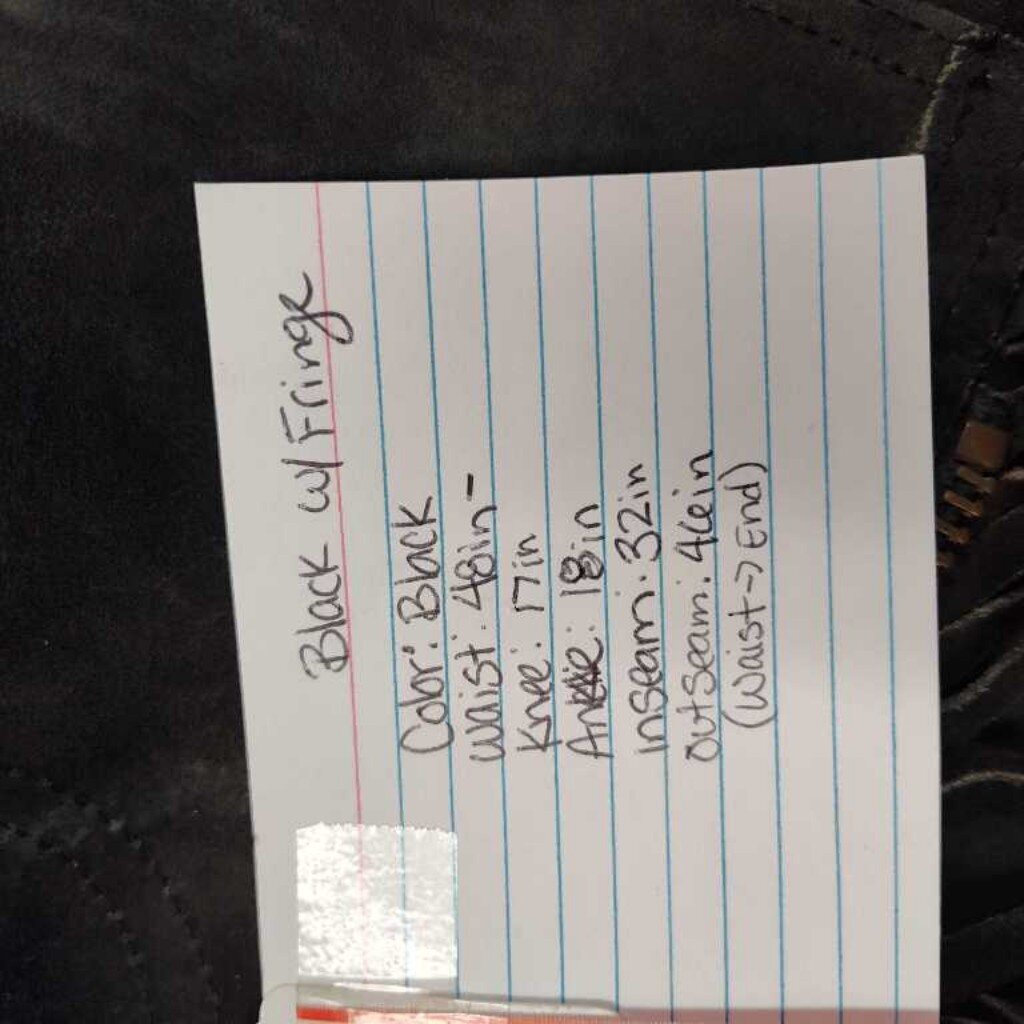 Black w/ Fringe
Color: Black
Waist: 48in-
Knee: 17in
Ankle: 18in
inseam: 32in
outseam: 46in
(Waist→End)